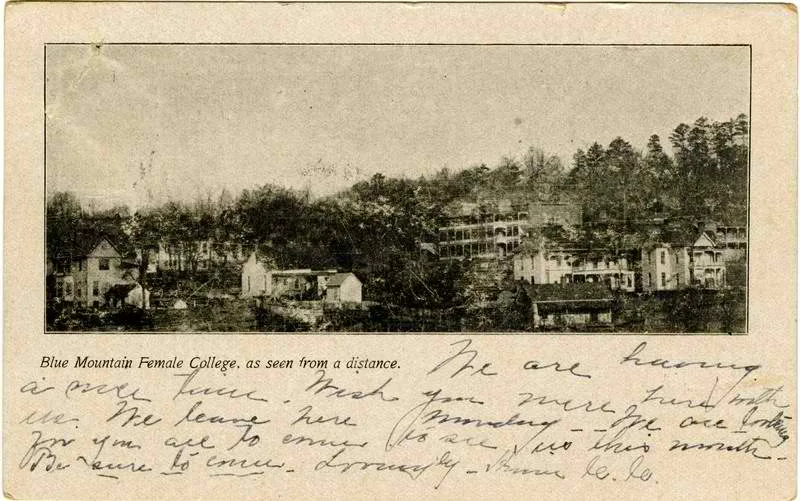 Blue Mountain Female College, as seen from a distance.
We are having
a nice time. Wish you were here with
us. We leave here Monday - We are looking
for you all to come to see us this month -
Be sure to come. Lovingly -